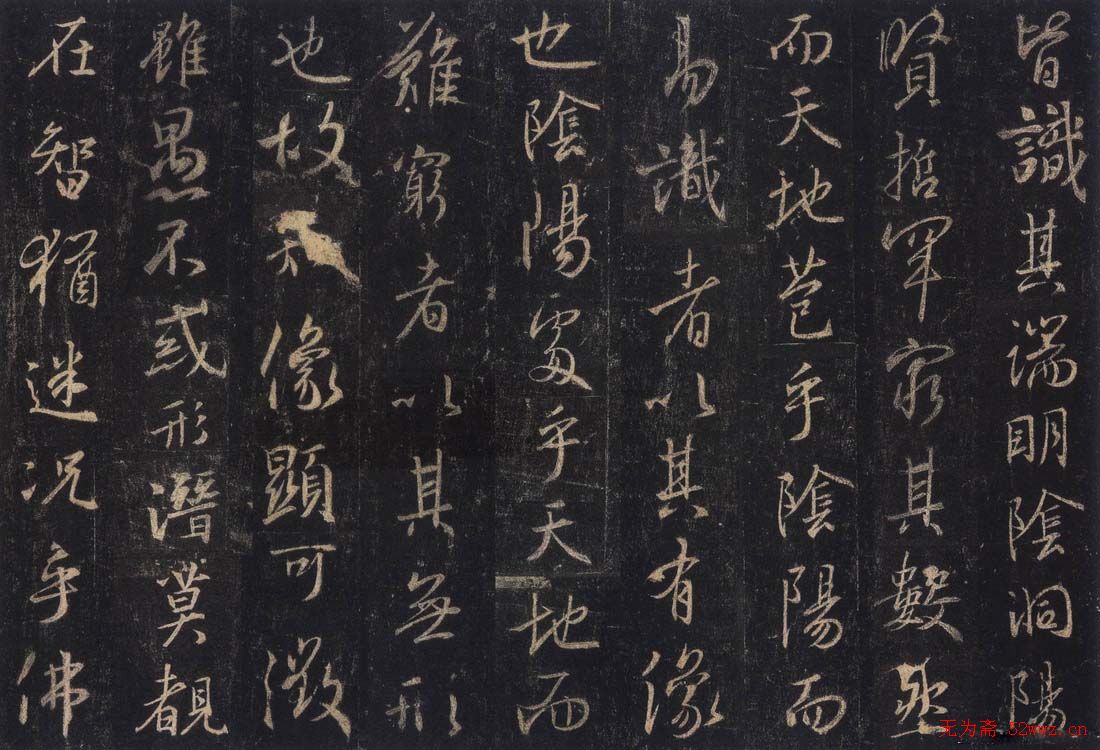 皆識其端明陰洞陽
賢哲罕窮其數然
而天地苞乎陰陽而
易識者以其有像
也陰陽處乎天地而
難窮者以其無形
也故像顯可徵
雖愚不惑形潛莫覩
在智猶迷況乎佛
无为斋 52wwz.cn